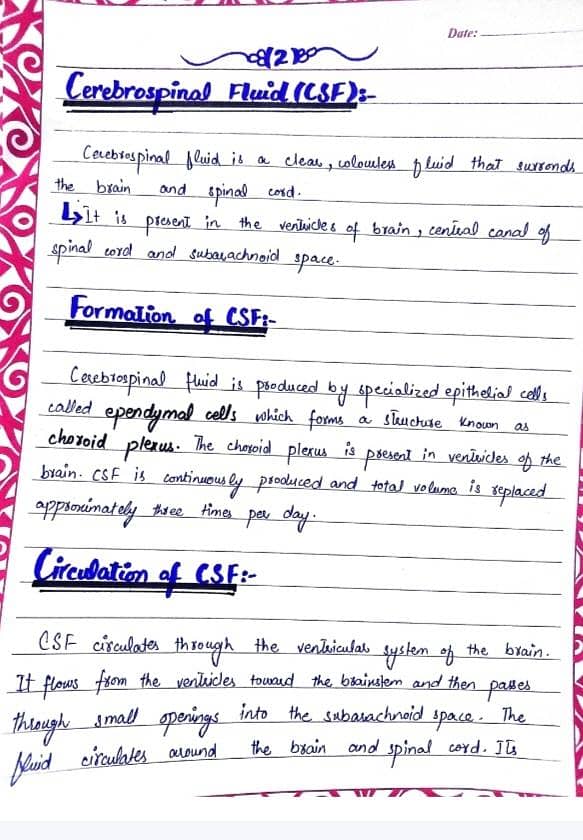 Date:
12
Cerebrospinal Fluid (CSF):-
Cerebrospinal fluid is a clear, colourless fluid that surronds
the brain and spinal cord.
↳It is present in the ventricles of brain, central canal of
spinal cord and subarachnoid space.
Formation of CSF:-
Cerebrospinal fluid is produced by specialized epithelial cells
called ependymal cells which forms a structure known as
choroid plexus. The choroid plexus is present in ventricles of the
brain. CSF is continuously produced and total volume is replaced
approximately three times per day.
Circulation of CSF:-
CSF circulates through the ventricular system of the brain.
It flows from the ventricles toward the brainstem and then passes
through small openings into the subarachnoid space. The
fluid circulates around the brain and spinal cord. Its